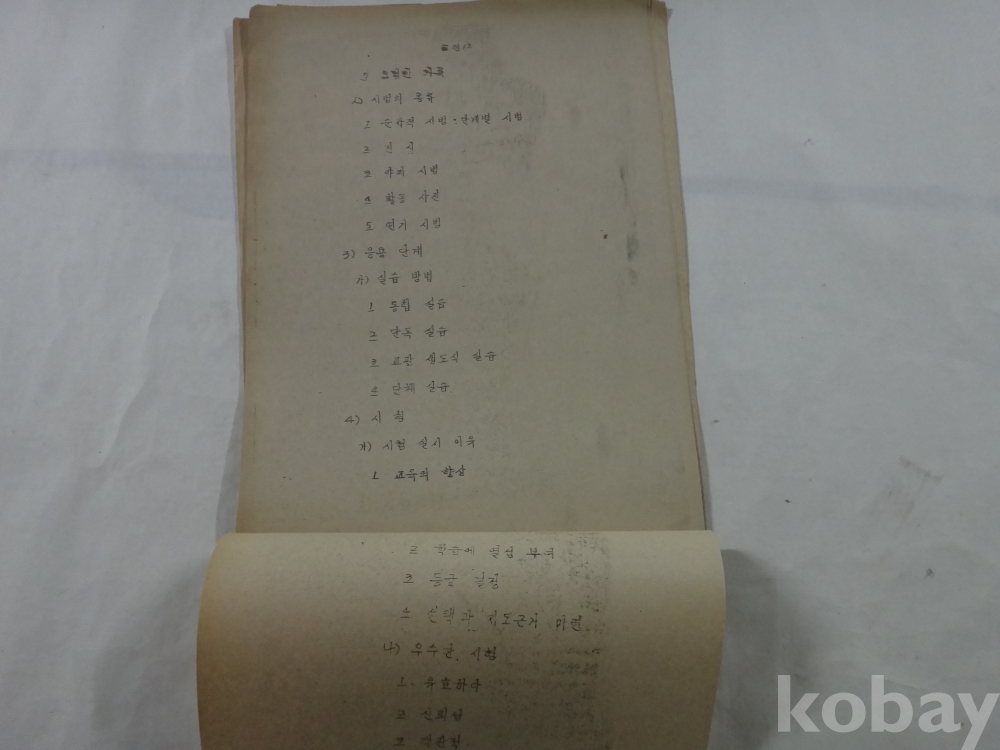 시범의 종류
1 순차적 시범 · 단계별 시범
2 전시
3 야외 시범
4 활동 사진
5 연기 시범
3) 응용 단계
가) 실습 방법
1 통합 실습
2 단독 실습
3 교관 생도식 실습
4 단체 실습
4) 시험
가) 시험 실시 이유
1 교육의 향상
2 학습에 열심 부국
3 등급 결정
4 선택과 지도근거 마련
나) 우수한 시험
1 유효하다
2 신뢰성
3 객관성
kobay